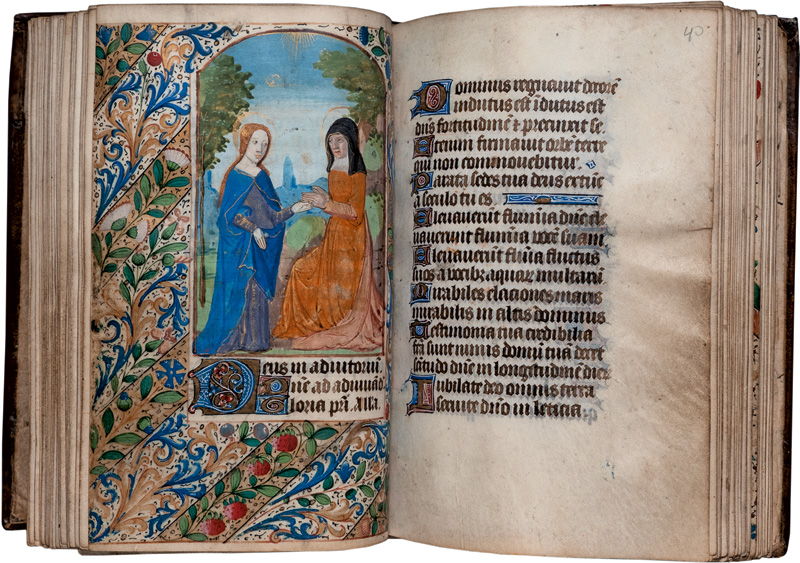 Deus in adiutoriū
meū ad adiuuād
Gloria pr̄i. Alla
40
Dominus regnauit decorē
indutus est īdutus est
dn̄s fortitudinē & precinxit se.
Etenim firmauit orbē terre
qui non commouebitur.
Parata sedes tua deus ex tūc
a seculo tu es
Eleuauerūt flumīa dn̄e ele
uauerūt flumīa vocē suam
Eleuauerūt flumīa fluctus
suos a vocib; aquar̄ multarū
Mirabiles elaciones maris
mirabilis in altis dominus
Testimonia tua credibilia
fc̄a sunt nimis domū tuā decet
sc̄titudo dn̄e in longitudinē dier̄
Iubilate deo omnis terra
seruite dn̄o in leticia